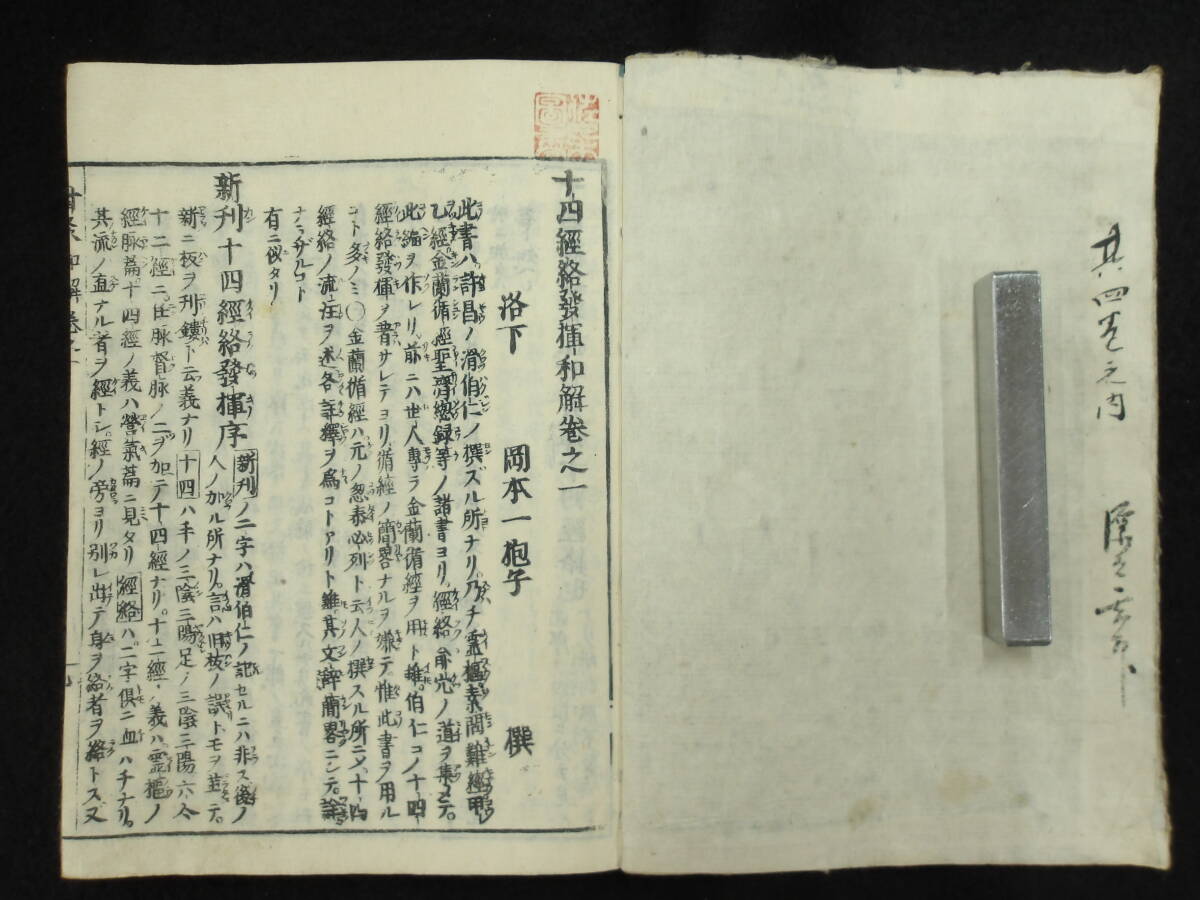 其四巻之内
十四經絡發揮和解卷之一
洛下 岡本一抱子 撰
此書ハ許昌ノ滑伯仁ノ撰ズル所ナリ乃チ霊樞素問難經甲
乙經金蘭循經聖濟總録等ノ諸書ヨリ經絡兪穴ノ道ヲ集メテ
此編ヲ作レリ前ニハ世人專ラ金蘭循經ヲ用ト雖伯仁コノ十四
經絡發揮ヲ著サレテヨリ循經ノ簡畧ナルヲ嫌テ惟此書ヲ用ル
コト多ノミ〇金蘭循經ハ元ノ忽泰必列ト云人ノ撰スル所ニメ十四
經絡ノ流注ヲ述各註釋ヲ爲コトアリト雖其文辭簡畧ニシテ論
ナラザルコト
有ニ似タリ
新刊十四經絡發揮序
新刊ノ二字ハ滑伯仁ノ記セルニハ非ス後ノ
人ノ加ル所ナリ言ハ旧板ノ誤トモヲ正テ
新ニ板ヲ刊鏤ト云義ナリ十四ハ手ノ三陰三陽足ノ三陰三陽六今
十二經ニ任脉督脉ノ二ヲ加テ十四經ナリ十二經ノ義ハ霊樞ノ
經脉篇十四經ノ義ハ營氣篇ニ見タリ經絡ハ二字俱ニ血ハチナリ
其流ノ直ナル者ヲ經トシ經ノ旁ヨリ別レ出テ身ヲ絡者ヲ絡トス又
和解卷之一